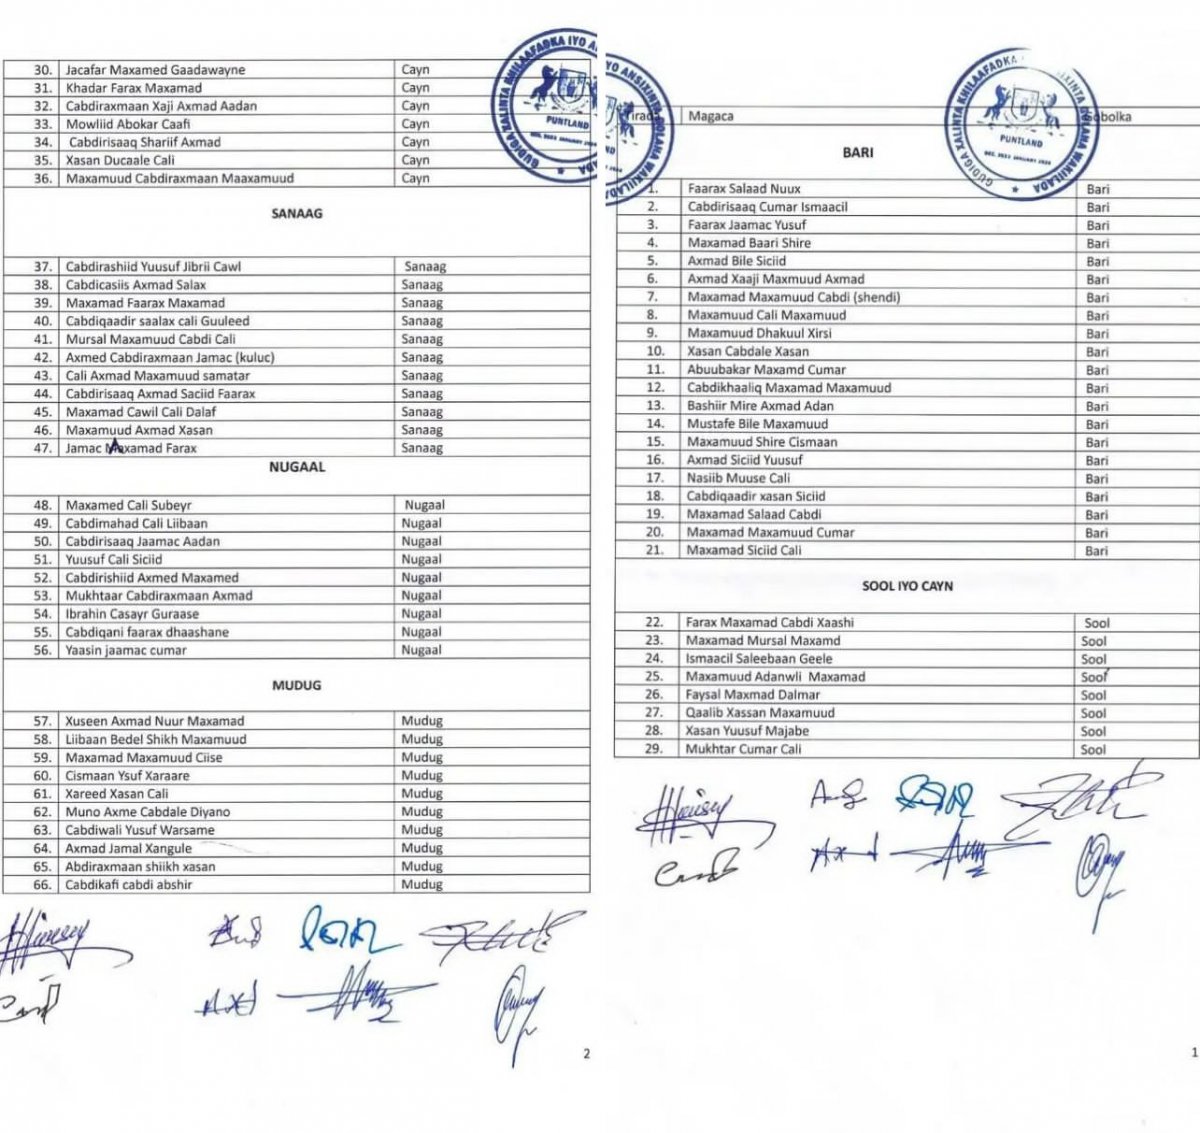 30. Jacafar Maxamed Gaadawayne Cayn
31. Khadar Farax Maxamad Cayn
32. Cabdiraxmaan Xaji Axmad Aadan Cayn
33. Mowliid Abokar Caafi Cayn
34. Cabdirisaaq Shariif Axmad Cayn
35. Xasan Ducaale Cali Cayn
36. Maxamuud Cabdiraxmaan Maaxamuud Cayn
SANAAG
37. Cabdirashiid Yuusuf Jibrii Cawl Sanaag
38. Cabdicasiis Axmad Salax Sanaag
39. Maxamad Faarax Maxamad Sanaag
40. Cabdiqaadir saalax cali Guuleed Sanaag
41. Mursal Maxamuud Cabdi Cali Sanaag
42. Axmed Cabdiraxmaan Jamac (kuluc) Sanaag
43. Cali Axmad Maxamuud samatar Sanaag
44. Cabdirisaaq Axmad Saciid Faarax Sanaag
45. Maxamad Cawil Cali Dalaf Sanaag
46. Maxamuud Axmad Xasan Sanaag
47. Jamac Maxamad Farax Sanaag
NUGAAL
48. Maxamed Cali Subeyr Nugaal
49. Cabdimahad Cali Liibaan Nugaal
50. Cabdirisaaq Jaamac Aadan Nugaal
51. Yuusuf Cali Siciid Nugaal
52. Cabdirishiid Axmed Maxamed Nugaal
53. Mukhtaar Cabdiraxmaan Axmad Nugaal
54. Ibrahin Casayr Guraase Nugaal
55. Cabdiqani faarax dhaashane Nugaal
56. Yaasin jaamac cumar Nugaal
MUDUG
57. Xuseen Axmad Nuur Maxamad Mudug
58. Liibaan Bedel Shikh Maxamuud Mudug
59. Maxamad Maxamuud Ciise Mudug
60. Cismaan Ysuf Xaraare Mudug
61. Xareed Xasan Cali Mudug
62. Muno Axme Cabdale Diyano Mudug
63. Cabdiwali Yusuf Warsame Mudug
64. Axmad Jamal Xangule Mudug
65. Abdiraxmaan shiikh xasan Mudug
66. Cabdikafi cabdi abshir Mudug
2
GUDIGA XALINTA KHILAAFADKA IYO
PUNTLAND
IYO ANSIXINTA GOLAHA WAKIILADA
GUDIGA XALINTA KHILAAFADKA
PUNTLAND
DEC, 2023 JANUARY 2024
WAKIILADA
Magaca
BARI
1. Faarax Salaad Nuux Bari
2. Cabdirisaaq Cumar Ismaacil Bari
3. Faarax Jaamac Yusuf Bari
4. Maxamad Baari Shire Bari
5. Axmad Bile Siciid Bari
6. Axmad Xaaji Maxmuud Axmad Bari
7. Maxamad Maxamuud Cabdi (shendi) Bari
8. Maxamuud Cali Maxamuud Bari
9. Maxamuud Dhakuul Xirsi Bari
10. Xasan Cabdale Xasan Bari
11. Abuubakar Maxamd Cumar Bari
12. Cabdikhaaliq Maxamad Maxamuud Bari
13. Bashiir Mire Axmad Adan Bari
14. Mustafe Bile Maxamuud Bari
15. Maxamuud Shire Cismaan Bari
16. Axmad Siciid Yuusuf Bari
17. Nasiib Muuse Cali Bari
18. Cabdiqaadir xasan Siciid Bari
19. Maxamad Salaad Cabdi Bari
20. Maxamad Maxamuud Cumar Bari
21. Maxamad Siciid Cali Bari
SOOL IYO CAYN
22. Farax Maxamad Cabdi Xaashi Sool
23. Maxamad Mursal Maxamd Sool
24. Ismaacil Saleebaan Geele Sool
25. Maxamuud Adanwli Maxamad Sool
26. Faysal Maxmad Dalmar Sool
27. Qaalib Xassan Maxamuud Sool
28. Xasan Yuusuf Majabe Sool
29. Mukhtar Cumar Cali Sool
1